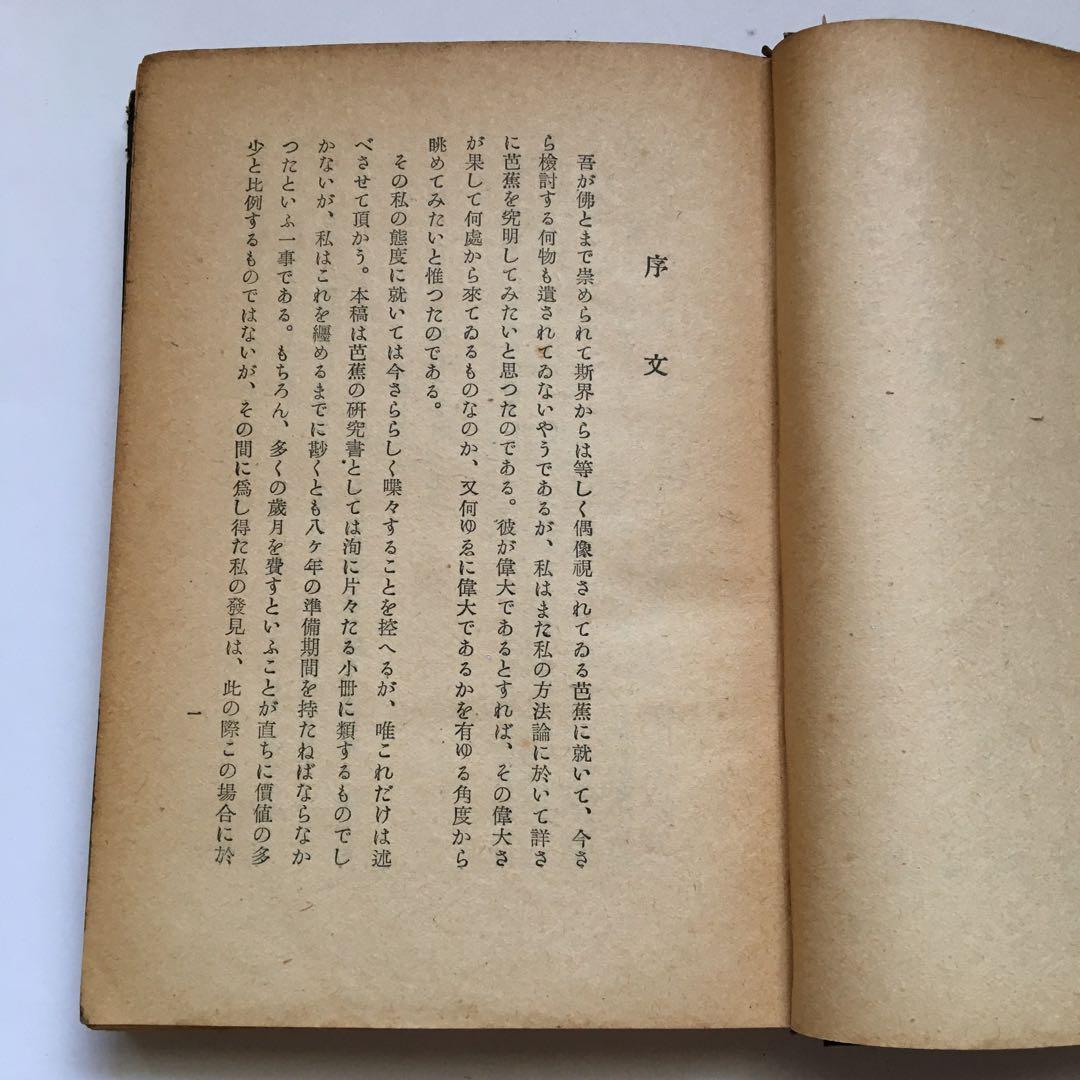 序文
吾が佛とまで崇められて斯界からは等しく偶像視されてゐる芭蕉に就いて、今さ
ら檢討する何物も遺されてゐないやうであるが、私はまた私の方法論に於いて詳さ
に芭蕉を究明してみたいと思つたのである。彼が偉大であるとすれば、その偉大さ
が果して何處から來てゐるものなのか、又何ゆゑに偉大であるかを有ゆる角度から
眺めてみたいと惟つたのである。
その私の態度に就いては今さららしく喋々することを控へるが、唯これだけは述
べさせて頂かう。本稿は芭蕉の硏究書としては洵に片々たる小冊に類するものでし
かないが、私はこれを纒めるまでに尠くとも八ヶ年の準備期間を持たねばならなか
つたといふ一事である。もちろん、多くの歲月を費すといふことが直ちに價値の多
少と比例するものではないが、その間に爲し得た私の發見は、此の際この場合に於
一